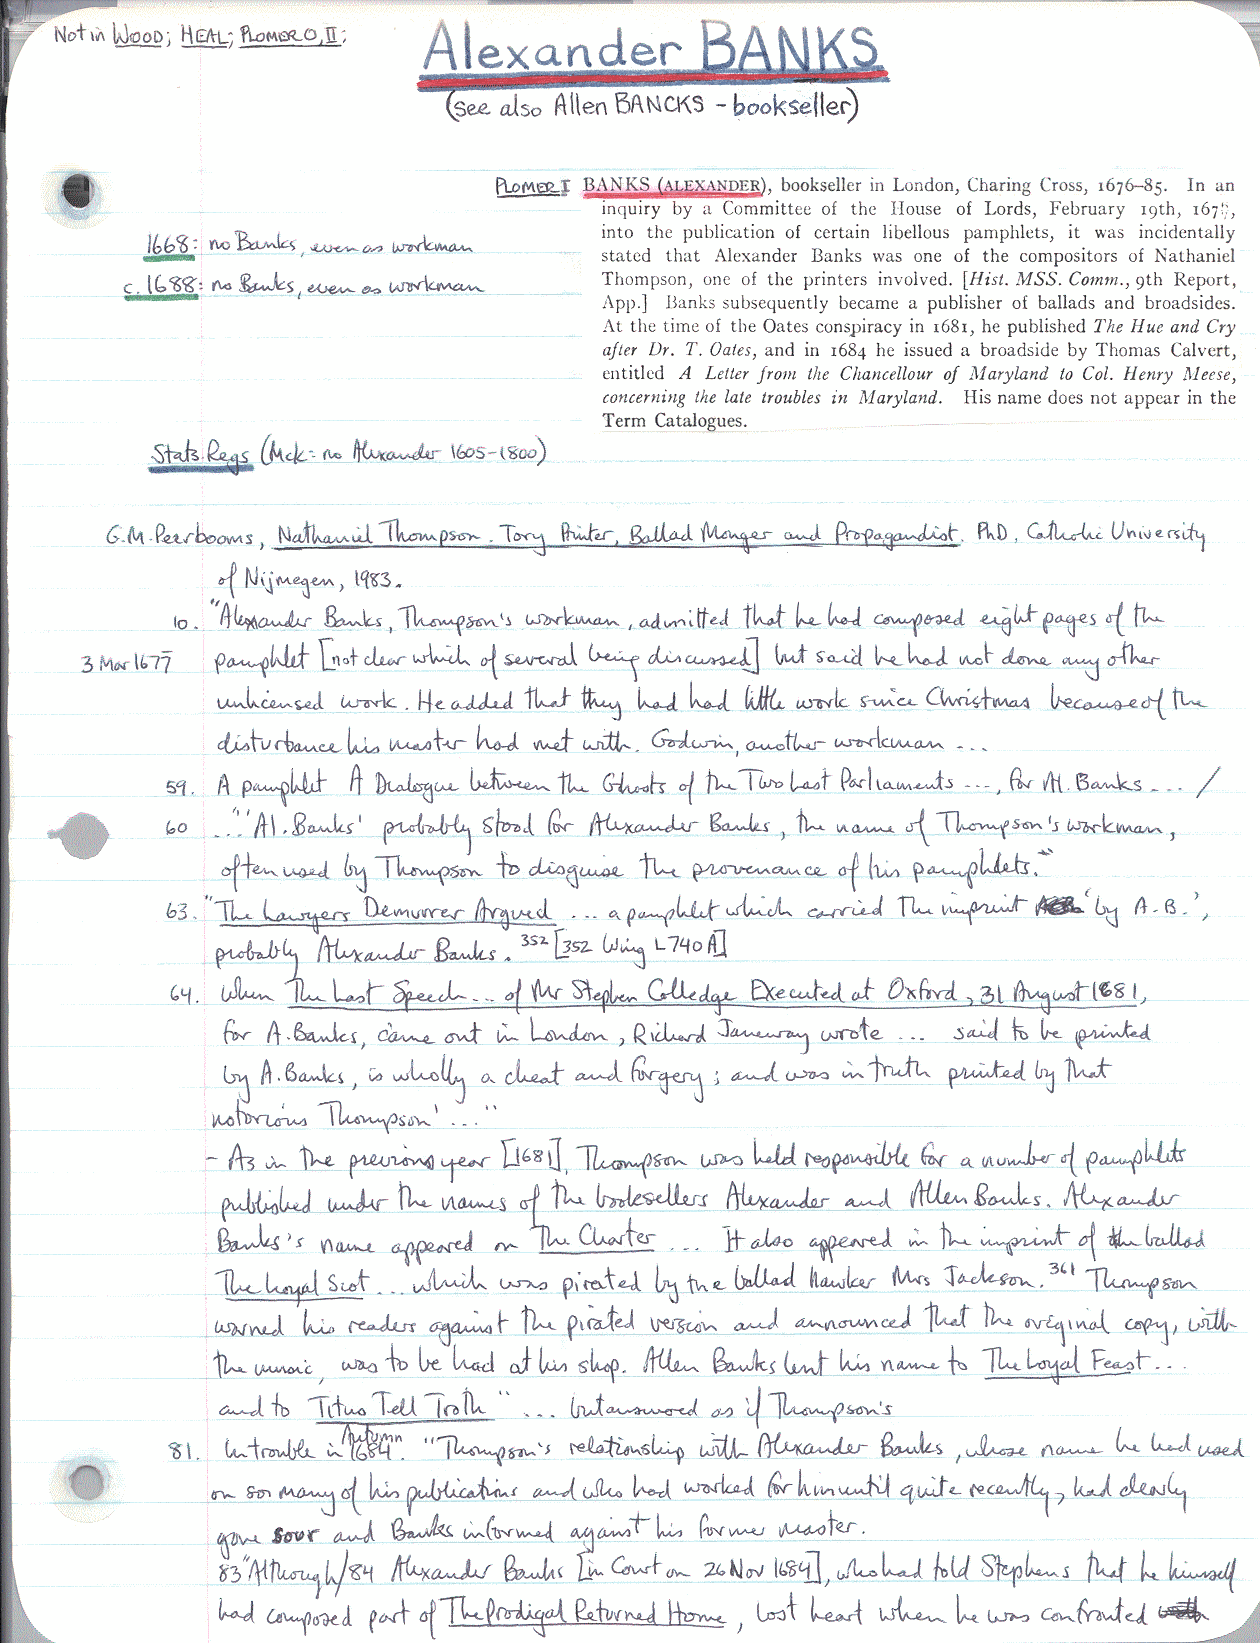 Not in WOOD; HEAL; PLOMER O, II;
Alexander BANKS
(see also Allen BANCKS - bookseller)
PLOMER I BANKS (ALEXANDER), bookseller in London, Charing Cross, 1676–85. In an
inquiry by a Committee of the House of Lords, February 19th, 167
into the publication of certain libellous pamphlets, it was incidentally
stated that Alexander Banks was one of the compositors of Nathaniel
Thompson, one of the printers involved. [Hist. MSS. Comm., 9th Report,
App.] Banks subsequently became a publisher of ballads and broadsides.
At the time of the Oates conspiracy in 1681, he published The Hue and Cry
after Dr. T. Oates, and in 1684 he issued a broadside by Thomas Calvert,
entitled A Letter from the Chancellour of Maryland to Col. Henry Meese,
concerning the late troubles in Maryland. His name does not appear in the
Term Catalogues.
1668: no Banks, even as workman
c. 1688: no Banks, even as workman
Stats Regs (Mck: no Alexander 1605-1800)
G.M. Peerbooms, Nathaniel Thompson. Tory Printer, Ballad Monger and Propagandist. PhD. Catholic University
of Nijmegen, 1983.
10. "Alexander Banks, Thompson's workman, admitted that he had composed eight pages of the
3 Mar 1677 pamphlet [not clear which of several being discussed] but said he had not done any other
unlicensed work. He added that they had had little work since Christmas because of the
disturbance his master had met with. Godwin, another workman ...
59. A pamphlet A Dialogue between the Ghosts of the Two Last Parliaments ..., for Al. Banks ... /
60 ... "'Al. Banks' probably stood for Alexander Banks, the name of Thompson's workman,
often used by Thompson to disguise the provenance of his pamphlets."
63. "The Lawyers Demurrer Argued ... a pamphlet which carried the imprint 'by A.B.',
probably Alexander Banks. 352 [352 Wing L740A]
64. When The Last Speech ... of Mr Stephen Colledge Executed at Oxford, 31 August 1681,
for A. Banks, came out in London, Richard Janeway wrote ... said to be printed
by A. Banks, is wholly a cheat and forgery; and was in truth printed by that
notorious Thompson' ..."
- As in the previous year [1681], Thompson was held responsible for a number of pamphlets
published under the names of the booksellers Alexander and Allen Banks. Alexander
Banks's name appeared on The Charter ... It also appeared in the imprint of the ballad
The Loyal Scot ... which was pirated by the ballad hawker Mrs Jackson. 361 Thompson
warned his readers against the pirated version and announced that the original copy, with
the music, was to be had at his shop. Allen Banks lent his name to The Loyal Feast ...
and to Titus Tell Troth" ... but answered as if Thompson's
81. In trouble in Autumn 1684. "Thompson's relationship with Alexander Banks, whose name he had used
on so many of his publications and who had worked for him until quite recently, had clearly
gone sour and Banks informed against his former master.
83 "Although/84 Alexander Banks [in Court on 26 Nov 1684], who had told Stephens that he himself
had composed part of The Prodigal Returned Home, lost heart when he was confronted